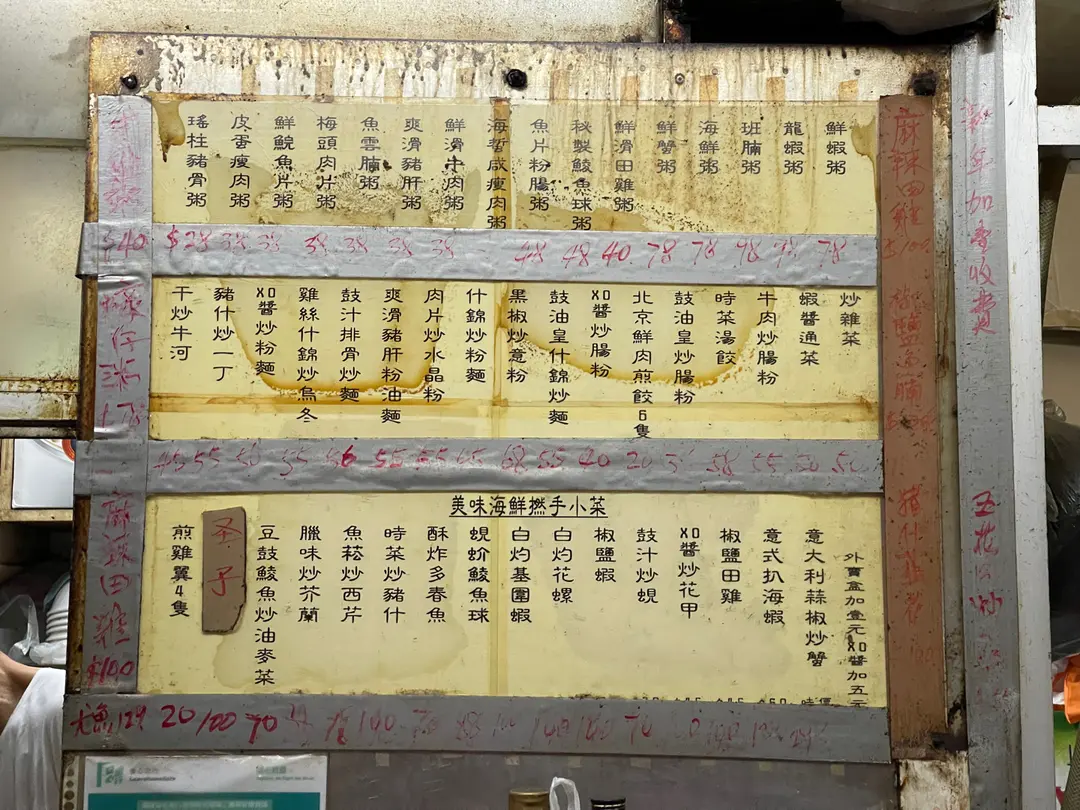 新年加壹收費
麻辣田雞
鮮蝦粥
龍蝦粥
班腩粥
海鮮粥
鮮蟹粥
鮮滑田雞粥
秘製鯪魚球粥
魚片粉腸粥
海蜇咸瘦肉粥
鮮滑牛肉粥
爽滑豬肝粥
魚雲腩粥
梅頭肉片粥
鮮鯇魚片粥
皮蛋瘦肉粥
瑤柱豬骨粥
$40
$28 38 38 38 38 38 38 48 48 40 78 78 98 78
炒雜菜
蝦醬通菜
牛肉炒腸粉
時菜湯餃
鼓油皇炒腸粉
北京鮮肉煎餃6隻
XO醬炒腸粉
鼓油皇什錦炒麵
黑椒炒意粉
什錦炒粉麵
肉片炒水晶粉
爽滑豬肝粉油麵
鼓汁排骨炒麵
雞絲什錦炒烏冬
XO醬炒粉麵
豬什炒一丁
干炒牛河
45 55 50 55 56 55 55 65 68 55 40 20 58 55 50 50
美味海鮮撚手小菜
外賣盒加壹元XO醬加五元
意大利蒜椒炒蟹
意式扒海蝦
椒鹽田雞
XO醬炒花甲
鼓汁炒蜆
椒鹽蝦
白灼花螺
白灼基圍蝦
蜆蚧鯪魚球
酥炸多春魚
時菜炒豬什
魚菘炒西芹
臘味炒芥蘭
豆鼓鯪魚炒油麥菜
圣子
煎雞翼4隻
麻辣田雞
$100
20 100 70